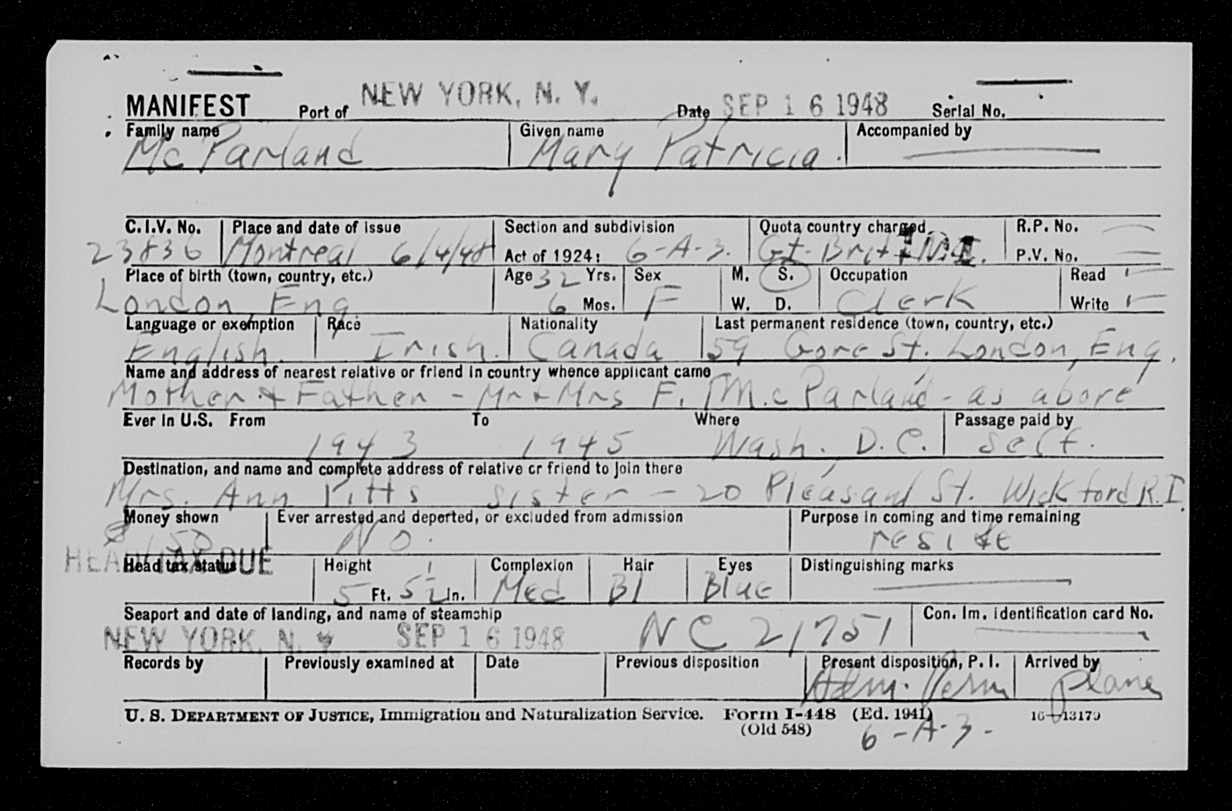 MANIFEST Port of NEW YORK, N. Y. Date SEP 16 1948 Serial No.
Family name Given name Accompanied by
McParland Mary Patricia.
C.I.V. No. Place and date of issue Section and subdivision Quota country charged R.P. No.
23836 Montreal 6/4/48 Act of 1924: 6-A-3. Gt. Brit + P.V. No.
Place of birth (town, country, etc.) Age 32 Yrs. Sex M. S. Occupation Read
London Eng 6 Mos. F W. D. Clerk Write
Language or exemption Race Nationality Last permanent residence (town, country, etc.)
English. Irish. Canada 59 Gore St. London, Eng.
Name and address of nearest relative or friend in country whence applicant came
Mother + Father - Mr + Mrs F. McParland - as above
Ever in U.S. From To Where Passage paid by
1943 1945 Wash. D.C. self.
Destination, and name and complete address of relative or friend to join there
Mrs. Ann Pitts sister - 20 Pleasant St. Wickford R.I.
Money shown Ever arrested and deported, or excluded from admission Purpose in coming and time remaining
$ 150 No. reside
HEAD TAX DUE
Head tax status Height Complexion Hair Eyes Distinguishing marks
5 Ft. 5½ In. Med Bl Blue
Seaport and date of landing, and name of steamship Con. Im. identification card No.
NEW YORK, N. Y. SEP 16 1948 NC 21751
Records by Previously examined at Date Previous disposition Present disposition, P. I. Arrived by
Adm. Perm Plane
U. S. DEPARTMENT OF JUSTICE, Immigration and Naturalization Service. Form I-448 (Ed. 1941) 16-13179
(Old 548) 6-A-3-